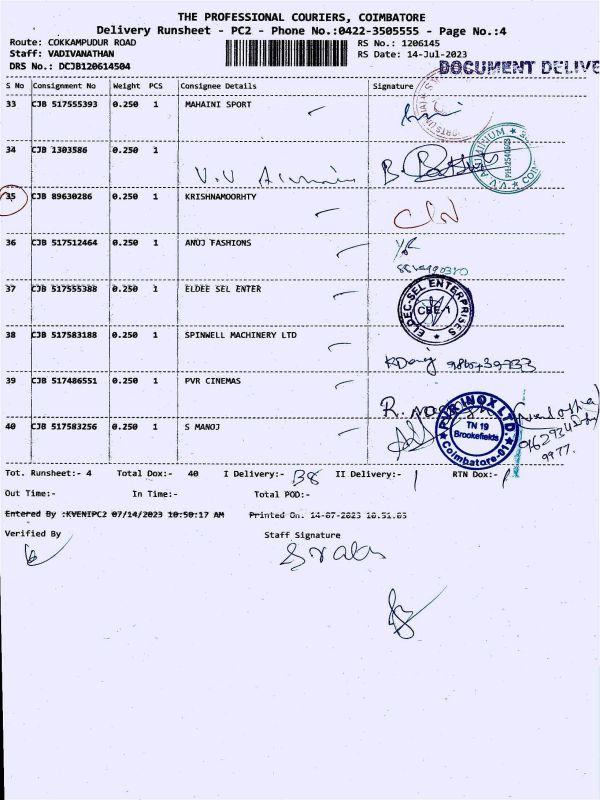 THE PROFESSIONAL COURIERS, COIMBATORE
Delivery Runsheet - PC2 - Phone No.:0422-3505555 - Page No.:4
Route: COKKAMPUDUR ROAD RS No.: 1206145
Staff: VADIVANATHAN RS Date: 14-Jul-2023
DRS No.: DCJB120614504 DOCUMENT DELIVE
S No Consignment No Weight PCS Consignee Details Signature
33 CJB 517555393 0.250 1 MAHAINI SPORT
34 CJB 1303586 0.250 1
V.V B.
V.V ALUMINIUM
35 CJB 89630286 0.250 1 KRISHNAMOORHTY
36 CJB 517512464 0.250 1 ANUJ FASHIONS
37 CJB 517555388 0.250 1 ELDEE SEL ENTER
ELDEC-SEL ENTERPRISES
CBE-1
38 CJB 517583188 0.250 1 SPINWELL MACHINERY LTD
39 CJB 517486551 0.250 1 PVR CINEMAS
R.
PVR INOX LTD.
TN 19
Brookefields
Coimbatore-01
40 CJB 517583256 0.250 1 S MANOJ
9977.
Tot. Runsheet:- 4 Total Dox:- 40 I Delivery:- 38 II Delivery:- 1 RTN Dox:- 1
Out Time:- In Time:- Total POD:-
Entered By :KVENIPC2 07/14/2023 10:50:17 AM Printed On: 14-07-2023 10.51.05
Verified By Staff Signature